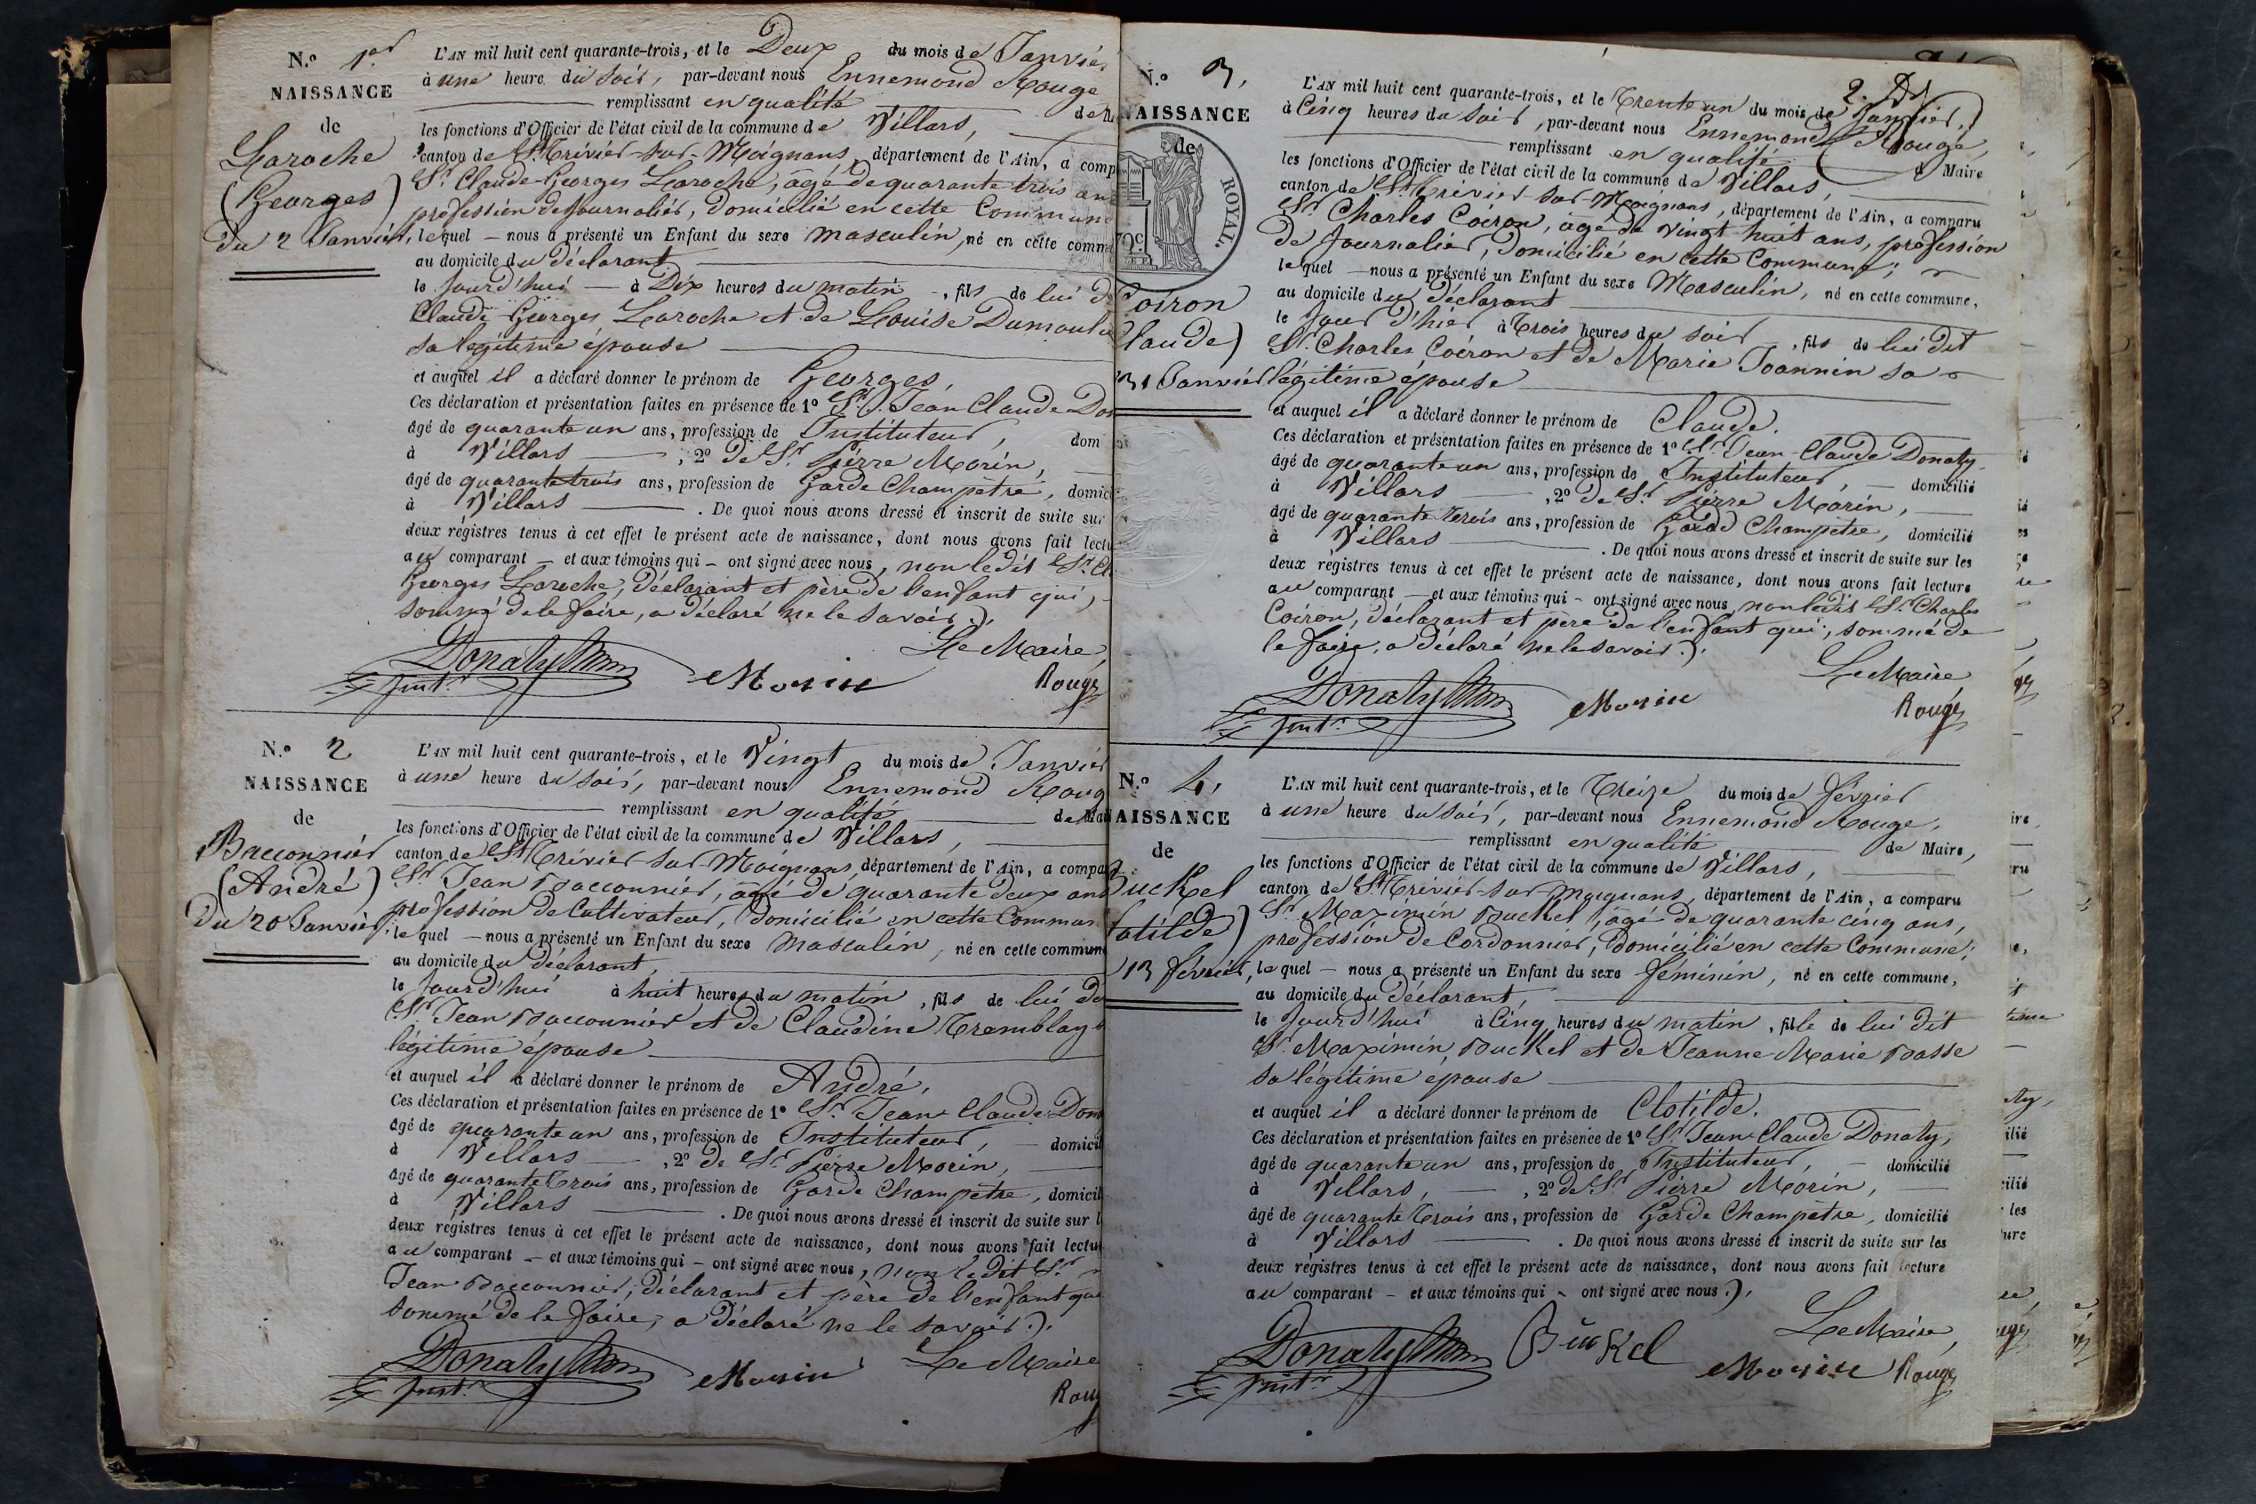 N.º 1er
NAISSANCE
de
Laroche
(Georges)
du 2 Janvier,
L'AN mil huit cent quarante-trois, et le Deux du mois de Janvier
à une heure du soir, par-devant nous Ennemond Rouge
remplissant en qualité de
les fonctions d'Officier de l'état civil de la commune de Villars,
canton de St Trivier-sur-Moignans, département de l'Ain, a comp
Sr. Claude-Georges Laroche, âgé de quarante trois ans
profession de Journalier, domicilié en cette Commune
lequel nous a présenté un Enfant du sexe masculin, né en cette comm
au domicile du déclarant
le jourd'hui à Dix heures du matin, fils de lui d
Claude Georges Laroche et de Louise Dumoul
sa légitime épouse
et auquel il a déclaré donner le prénom de Georges,
Ces déclaration et présentation faites en présence de 1º Sr. Jean Claude Do
âgé de quarante un ans, profession de Instituteur, dom
à Villars, 2º de Sr. Pierre Morin,
âgé de quarante trois ans, profession de Garde Champêtre, domic
à Villars. De quoi nous avons dressé et inscrit de suite su
deux régistres tenus à cet effet le présent acte de naissance, dont nous avons fait lectu
au comparant et aux témoins qui ont signé avec nous, non ledit Sr. Cl
Georges Laroche, déclarant et père de l'enfant qui,
sommé de le faire, a déclaré ne le savoir.
Le Maire,
Donaty
Instr.
Morin
Rouge
N.º 2
NAISSANCE
de
Bacconnier
(André)
Du 20 Janvier,
L'AN mil huit cent quarante-trois, et le Vingt du mois de Janvier
à une heure du soir, par-devant nous Ennemond Roug
remplissant en qualité de Mai
les fonctions d'Officier de l'état civil de la commune de Villars,
canton de St Trivier-sur-Moignans, département de l'Ain, a compa
Sr. Jean Bacconnier, âgé de quarante deux ans
profession de Cultivateur, domicilié en cette Commun
lequel nous a présenté un Enfant du sexe masculin, né en cette commun
au domicile du déclarant
le jourd'hui à huit heures du matin, fils de lui d
Sr. Jean Bacconnier et de Claudine Tremblay
légitime épouse
et auquel il a déclaré donner le prénom de André,
Ces déclaration et présentation faites en présence de 1º Sr. Jean Claude Don
âgé de quarante un ans, profession de Instituteur, domicil
à Villars, 2º de Sr. Pierre Morin,
âgé de quarante trois ans, profession de Garde Champêtre, domicil
à Villars. De quoi nous avons dressé et inscrit de suite sur l
deux régistres tenus à cet effet le présent acte de naissance, dont nous avons fait lectu
au comparant et aux témoins qui ont signé avec nous, non ledit Sr.
Jean Bacconnier, déclarant et père de l'enfant qu
sommé de le faire, a déclaré ne le savoir.
Donaty
Instr.
Morin
Le Maire
Roug
N.º 3,
NAISSANCE
de
ROYAL.
Coiron
Claude)
31 Janvier
2.
L'AN mil huit cent quarante-trois, et le Trente un du mois de Janvier,
à Cinq heures du soir, par-devant nous Ennemond Rouge,
remplissant en qualité Maire
les fonctions d'Officier de l'état civil de la commune de Villars,
canton de St Trivier-sur-Moignans, département de l'Ain, a comparu
Sr. Charles Coiron, âgé de vingt-huit ans, profession
de Journalier, domicilié en cette Commune;
lequel nous a présenté un Enfant du sexe Masculin, né en cette commune,
au domicile du déclarant
le jour d'hier à Trois heures du soir, fils de lui dit
Sr. Charles Coiron et de Marie Joannin sa
légitime épouse
et auquel il a déclaré donner le prénom de Claude.
Ces déclaration et présentation faites en présence de 1º Sr. Jean-Claude Donaty,
âgé de quarante un ans, profession de Instituteur, domicilié
à Villars, 2º de Sr. Pierre Morin,
âgé de quarante trois ans, profession de Garde Champêtre, domicilié
à Villars. De quoi nous avons dressé et inscrit de suite sur les
deux régistres tenus à cet effet le présent acte de naissance, dont nous avons fait lecture
au comparant et aux témoins qui ont signé avec nous non ledit Sr. Charles
Coiron, déclarant et père de l'enfant qui, sommé de
le faire, a déclaré ne le savoir.
Le Maire
Donaty
Instr.
Morin
Rouge
N.º 4,
NAISSANCE
de
Buckel
lotilde)
13 février,
L'AN mil huit cent quarante-trois, et le Treize du mois de février
à une heure du soir, par-devant nous Ennemond Rouge,
remplissant en qualité de Maire,
les fonctions d'Officier de l'état civil de la commune de Villars,
canton de St Trivier-sur-Moignans, département de l'Ain, a comparu
Sr. Maximin Buckel, âgé de quarante cinq ans,
profession de Cordonnier, domicilié en cette Commune;
lequel nous a présenté un Enfant du sexe féminin, né en cette commune,
au domicile du déclarant,
le jourd'hui à Cinq heures du matin, fille de lui dit
Sr. Maximin Buckel et de Jeanne Marie Basse
sa légitime épouse
et auquel il a déclaré donner le prénom de Clotilde.
Ces déclaration et présentation faites en présence de 1º Sr. Jean-Claude Donaty,
âgé de quarante un ans, profession de Instituteur, domicilié
à Villars, 2º de Sr. Pierre Morin,
âgé de quarante trois ans, profession de Garde Champêtre, domicilié
à Villars. De quoi nous avons dressé et inscrit de suite sur les
deux régistres tenus à cet effet le présent acte de naissance, dont nous avons fait lecture
au comparant et aux témoins qui ont signé avec nous.
Le Maire,
Donaty
Instr.
Buckel
Morin
Rouge